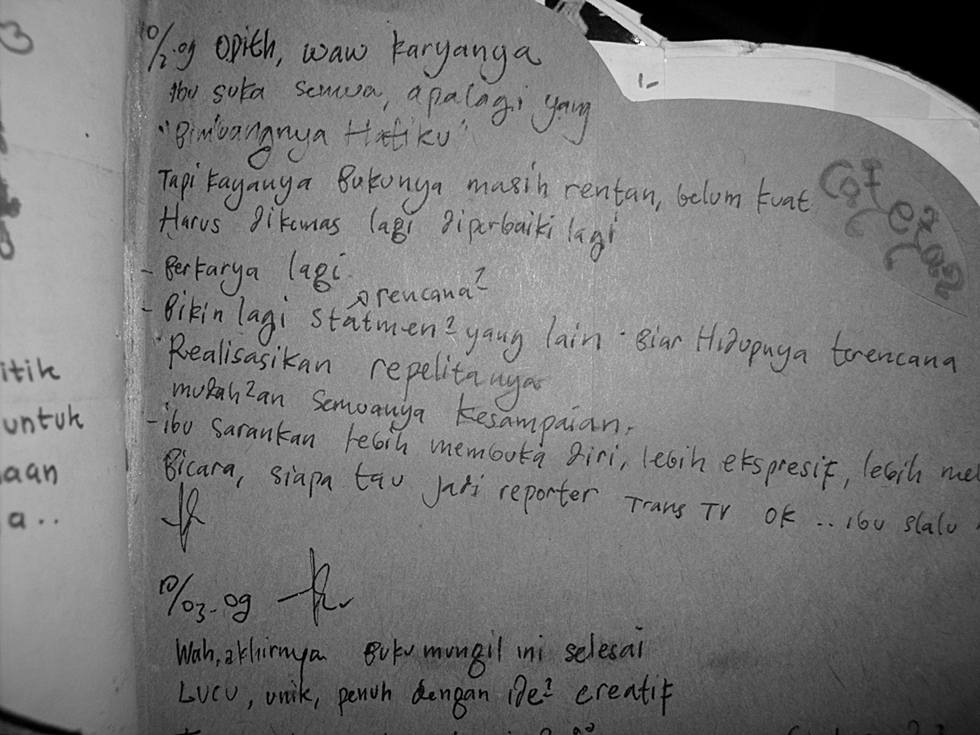 10/2-09 Opith, waw karyanya
Ibu suka semua, apalagi yang
"Bimbangnya Hatiku"
Tapi kayanya Bukunya masih rentan, belum kuat
Harus dikemas lagi diperbaiki lagi
- Berkarya lagi
rencana²
- Bikin lagi statmen² yang lain. Biar Hidupnya terencana
Realisasikan repelitanya
mudah²an semuanya kesampaian.
- ibu sarankan lebih membuka diri, lebih ekspresif, lebih
Bicara, siapa tau jadi reporter Trans TV OK .. ibu slalu
10/03-09
Wah, akhirnya Buku mungil ini selesai
Lucu, unik, penuh dengan ide² creatif
itik
untuk
aan
a..